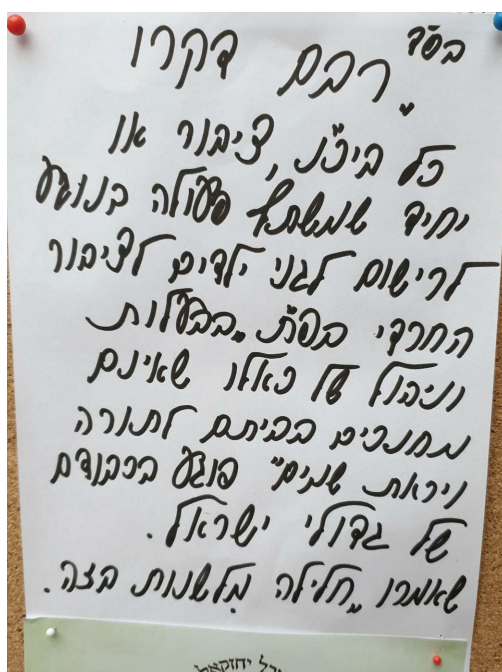 בס"ד
רבים יקרו
כל ביכ"נ, ציבור או
יחיד שמשתף פעולה בנוגע
לרישום לגני ילדים לציבור
החרדי בפ"ת "בבעלות
וניהול של כאלו שאינם
מחנכים בביתם לתורה
ויראת שמים" פוגע בכבודם
של גדולי ישראל.
שאמרו "חלילה מלשנות בזה.
יחזקאל